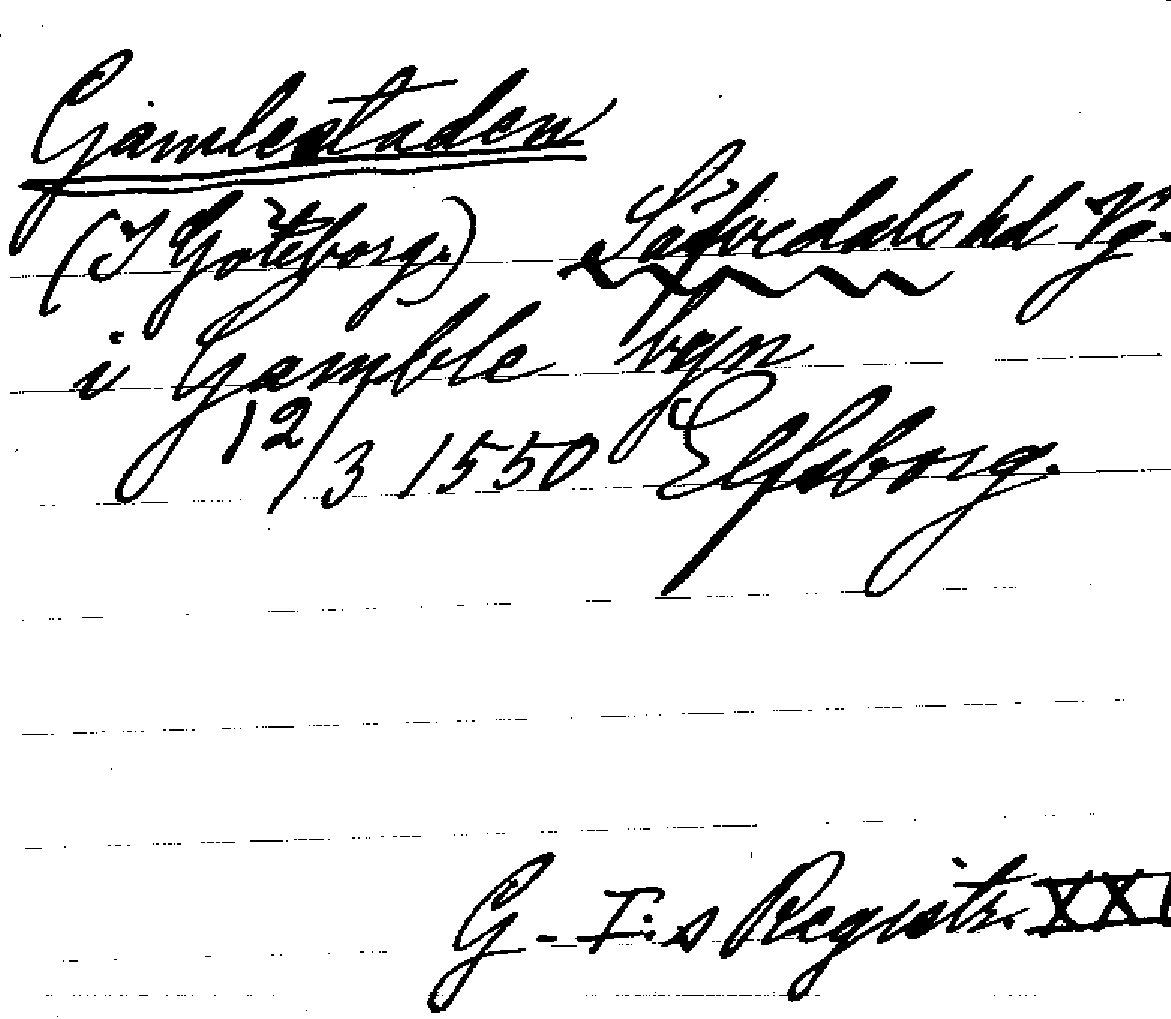 Gamlestaden
(I Göteborg.) Säfvedals hd Vg.
i Gamble byn
12/3 1550 Elfsborg.
G. I:s Registr. XXI